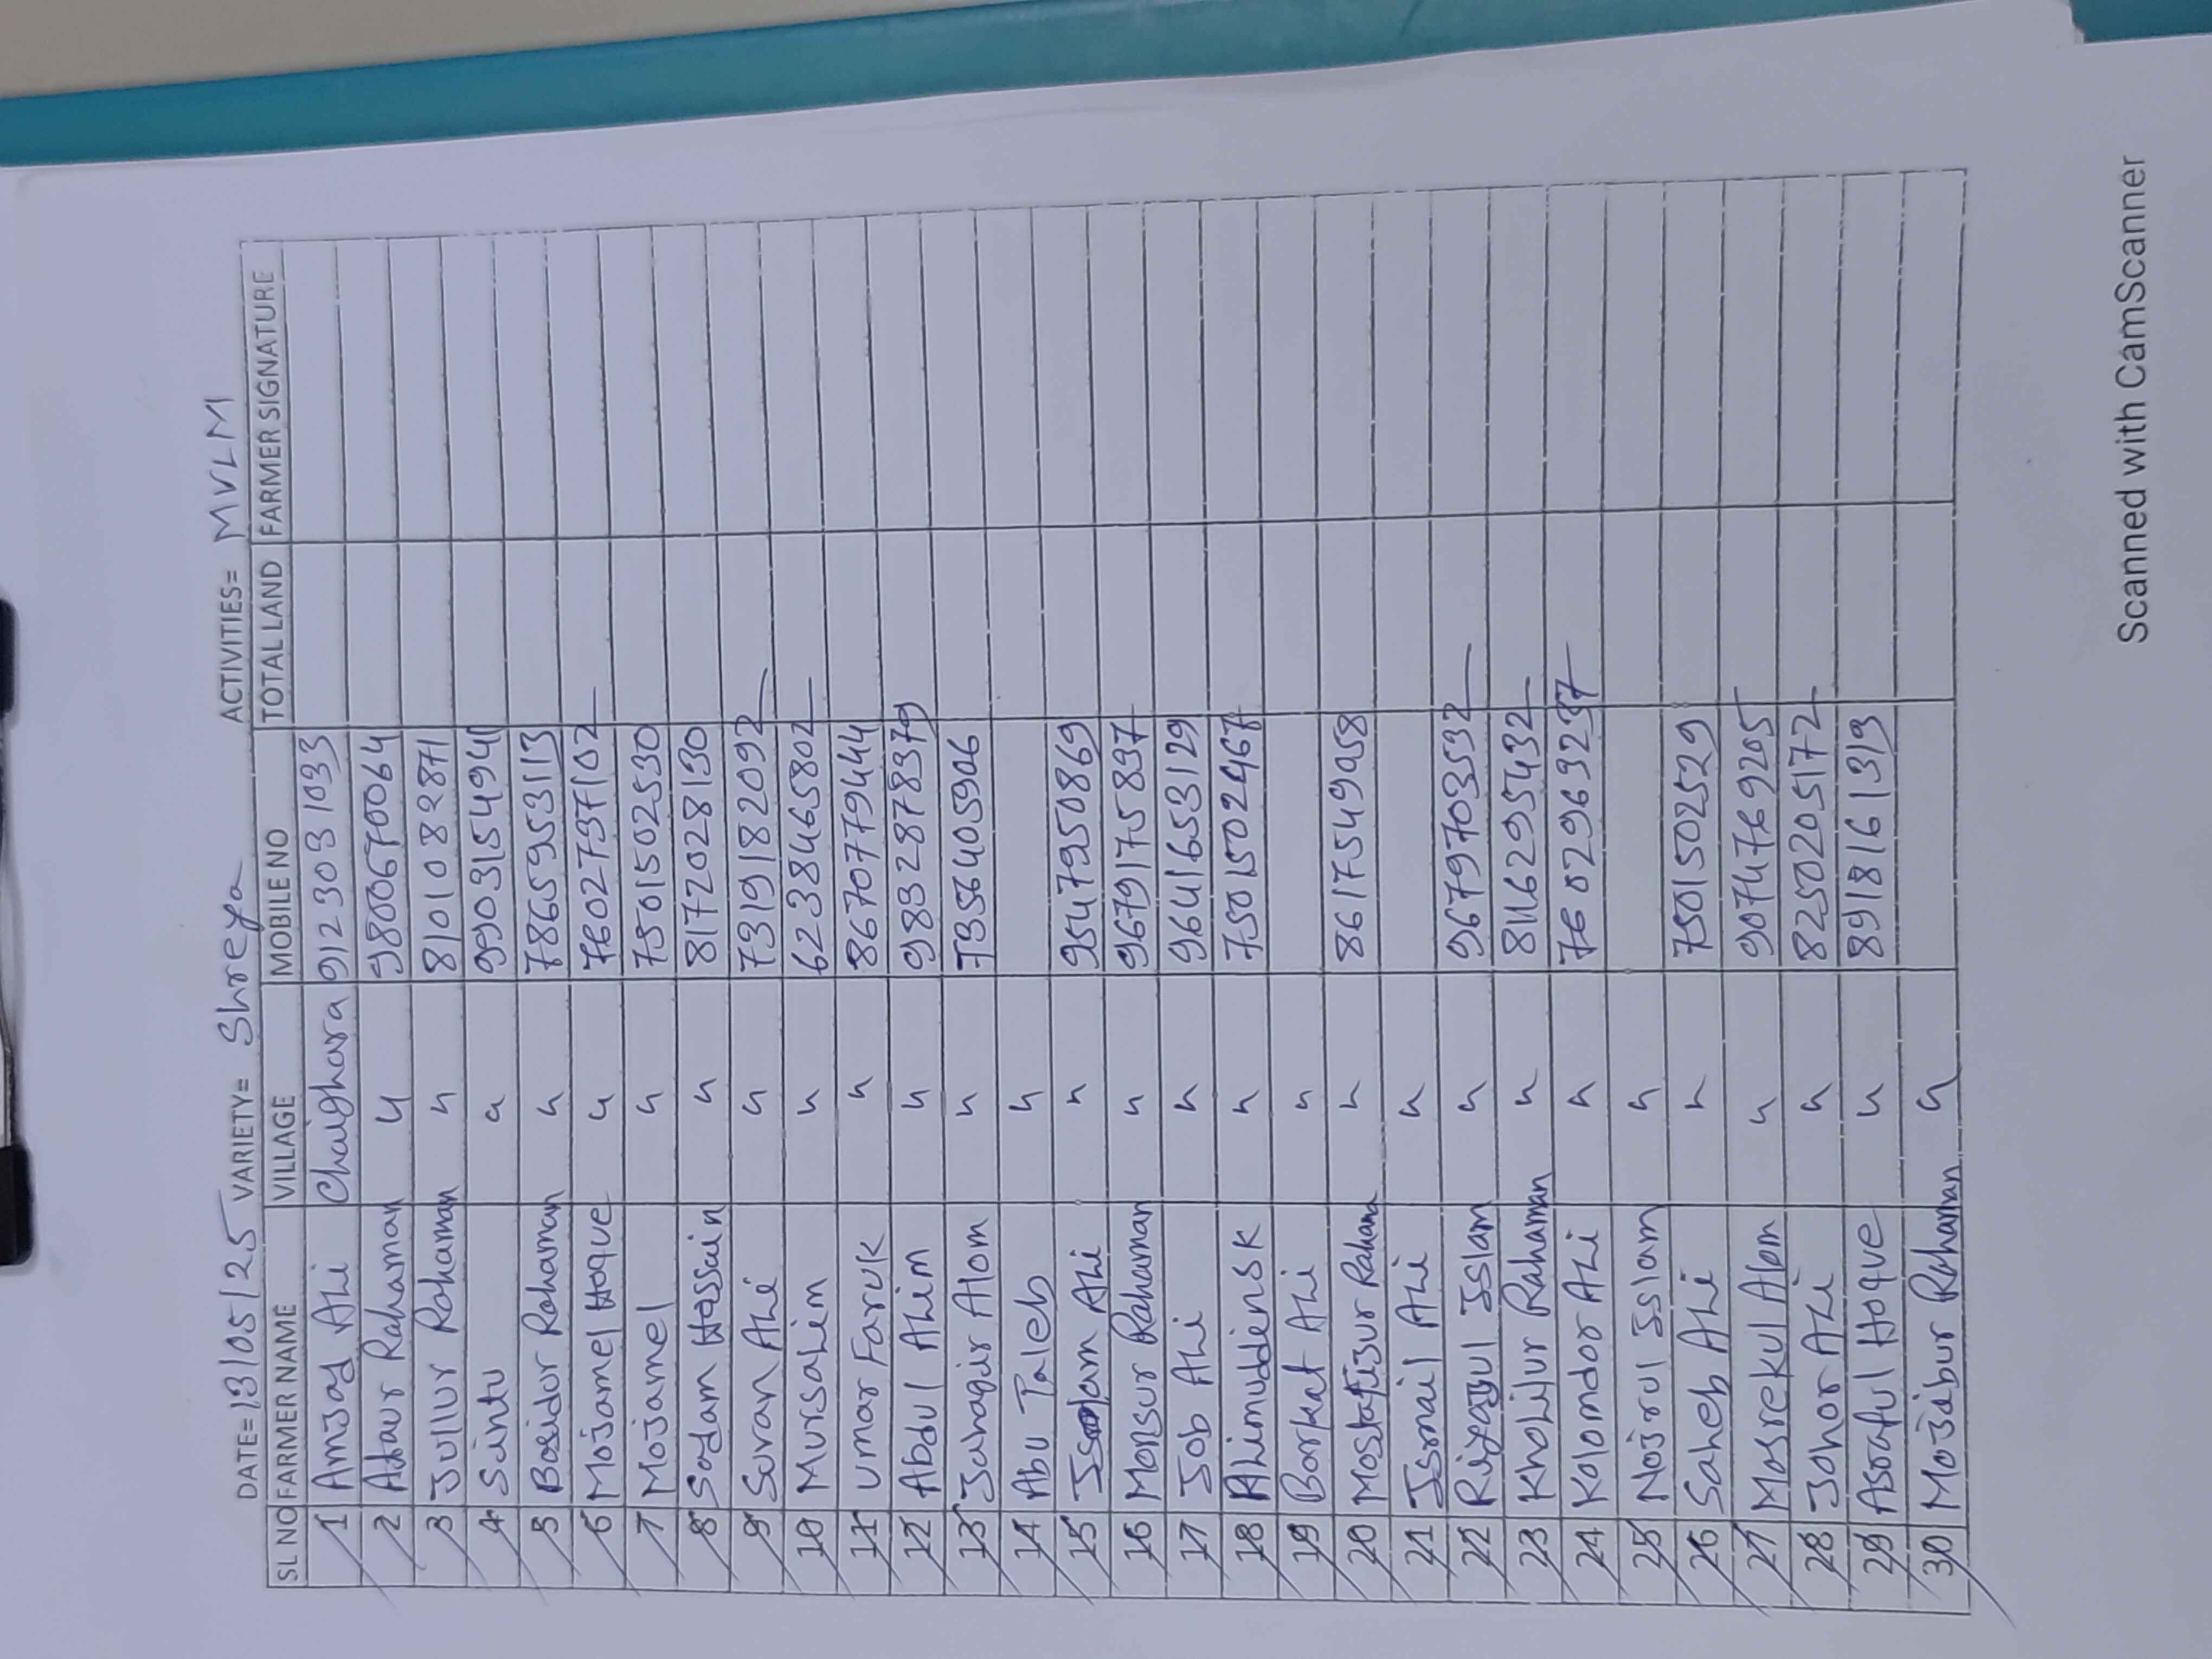 DATE=13/05/25 VARIETY= Shreya ACTIVITIES= MVLM
SL NO FARMER NAME VILLAGE MOBILE NO TOTAL LAND FARMER SIGNATURE
1 Amjad ALi Chaighara 9123031033
2 Ataur Rahaman 4 9800670064
3 Jullur Rahaman 4 8101082871
4 Sintu 4 9903154941
5 Basidur Rahaman 4 7865953113
6 Mojamel Hoque 4 7602737102
7 Mojamel 4 7501502530
8 Sadam Hossain 4 8172028130
9 Suran ALi 4 7319182092
10 MursaLim 4 6238465802
11 Umar Faruk 4 8670779444
12 Abdul ALim 4 9832878379
13 Jahagir Alom 4 7356405906
14 Abu Taleb 4
15 ALi 4 9547950869
16 Monsur Rahaman 4 9679175837
17 Job ALi 4 9641653129
18 ALimuddin SK 4 7501502467
19 Barkat ALi 4
20 Mostafijur Rahana 4 8617549058
21 Ismail ALi 4
22 Islam 4 9679703532
23 KhoLijur Rahaman 4 8116295432
24 Kolomdor ALi 4 7602963237
25 Nojrul Islam 4
26 Saheb ALi 4 7501502529
27 Mosrekul Alom 4 9074769205
28 Johor ALi 4 8250205172
29 Asraful Hoque 4 8918161319
30 Mojabur Rahaman 4
Scanned with CamScanner